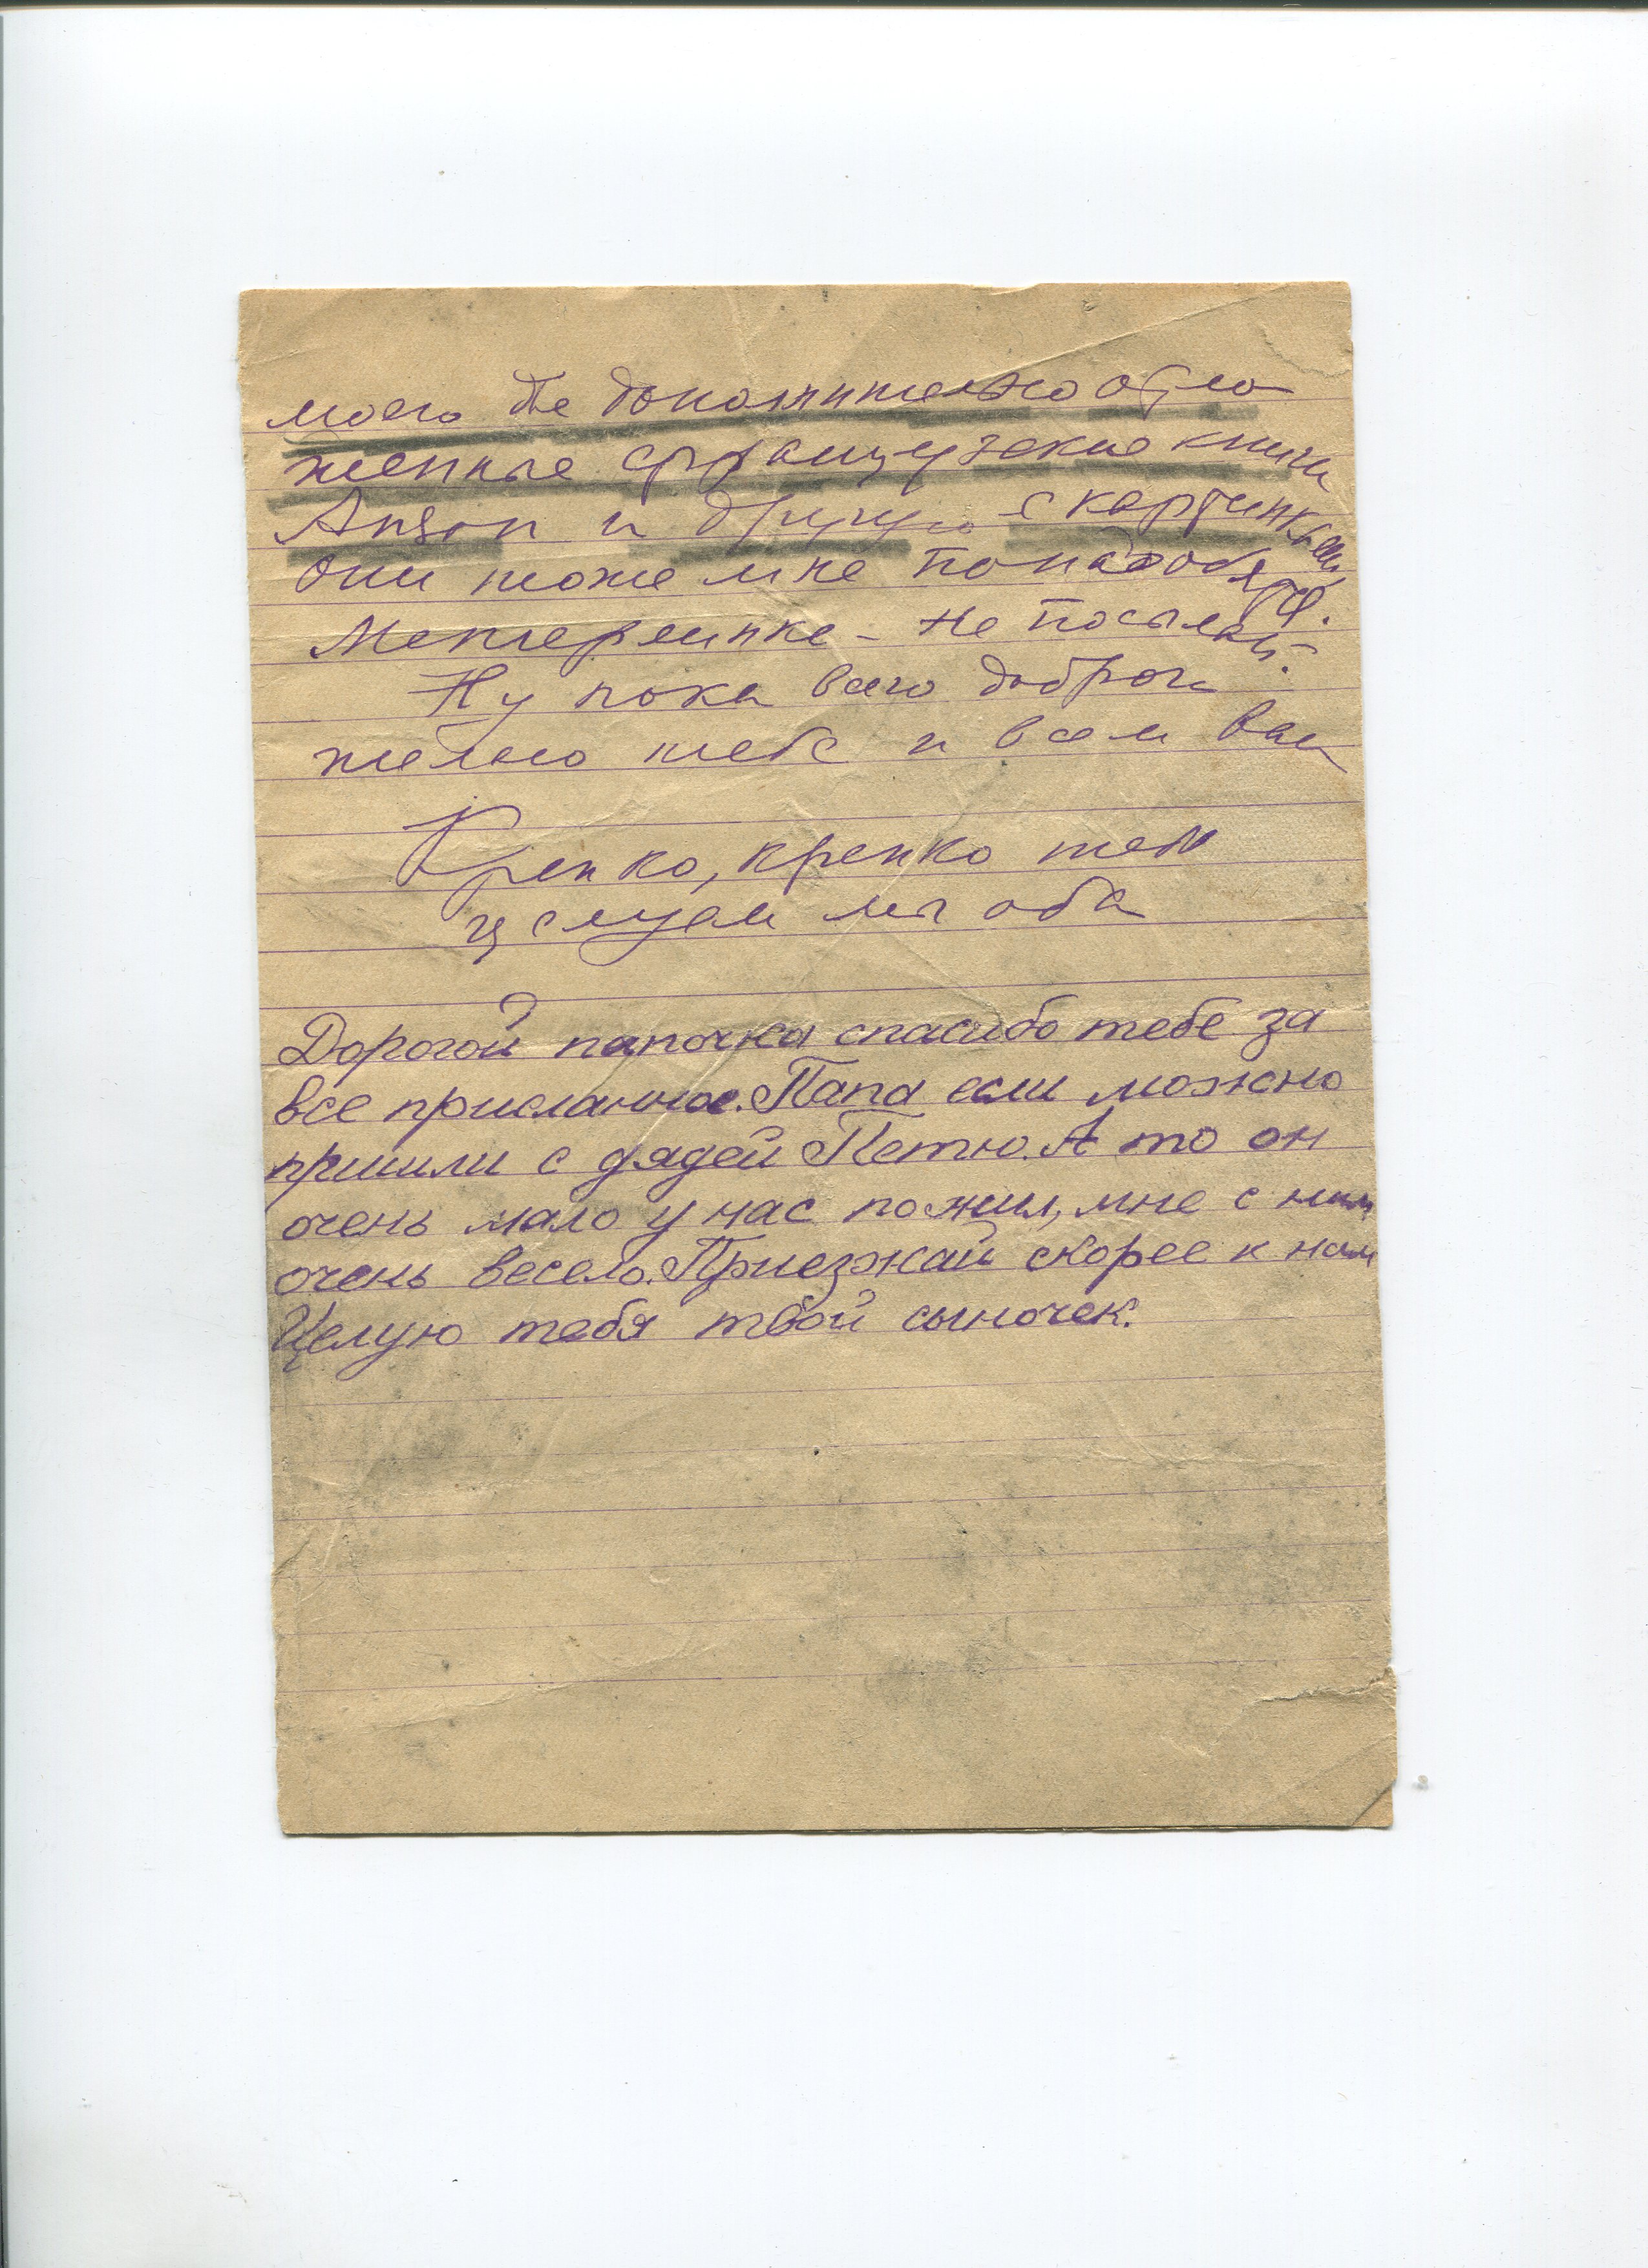 моего дополнительно отло
женные французские книги
и другую с картинками
они тоже мне понадобятся.
не посылай.
Ну пока всего доброго
желаю тебе и всем вам
Крепко, крепко тебя
целуем мы оба
Дорогой папочка спасибо тебе за
все присланное. Папа если можно
пришли с дядей Петю. А то он
очень мало у нас пожил, мне с ним
очень весело. Приезжай скорее к нам
Целую тебя твой сыночек.